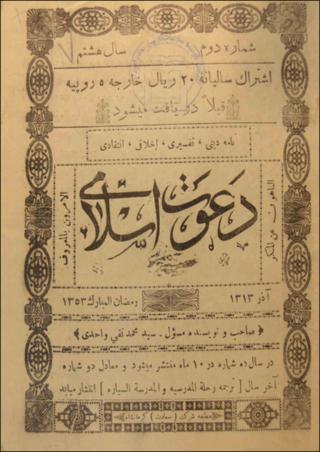 شماره دوم
سال هشتم
اشتراک سالیانه ۲۰ ریال خارجه ۵ روپیه
قبلاً دریافت میشود
نامه دینی ، تفسیری ، اخلاقی ، انتقادی
الامرون بالمعروف
دعوت اسلامی
الناهون عن المنکر
آذر ۱۳۱۳
رمضان المبارک ۱۳۵۳
﴿ صاحب و نویسنده مسؤل ـ سید محمد تقی واحدی ﴾
در سال ده شماره در ۱۰ ماه منتشر میشود و معادل دو شماره
آخر سال [ ترجمه رحلة المدرسیه و المدرسة السیاره ] انتشار میابد
مطبعه شرکت ( سعادت ) کرمانشاه